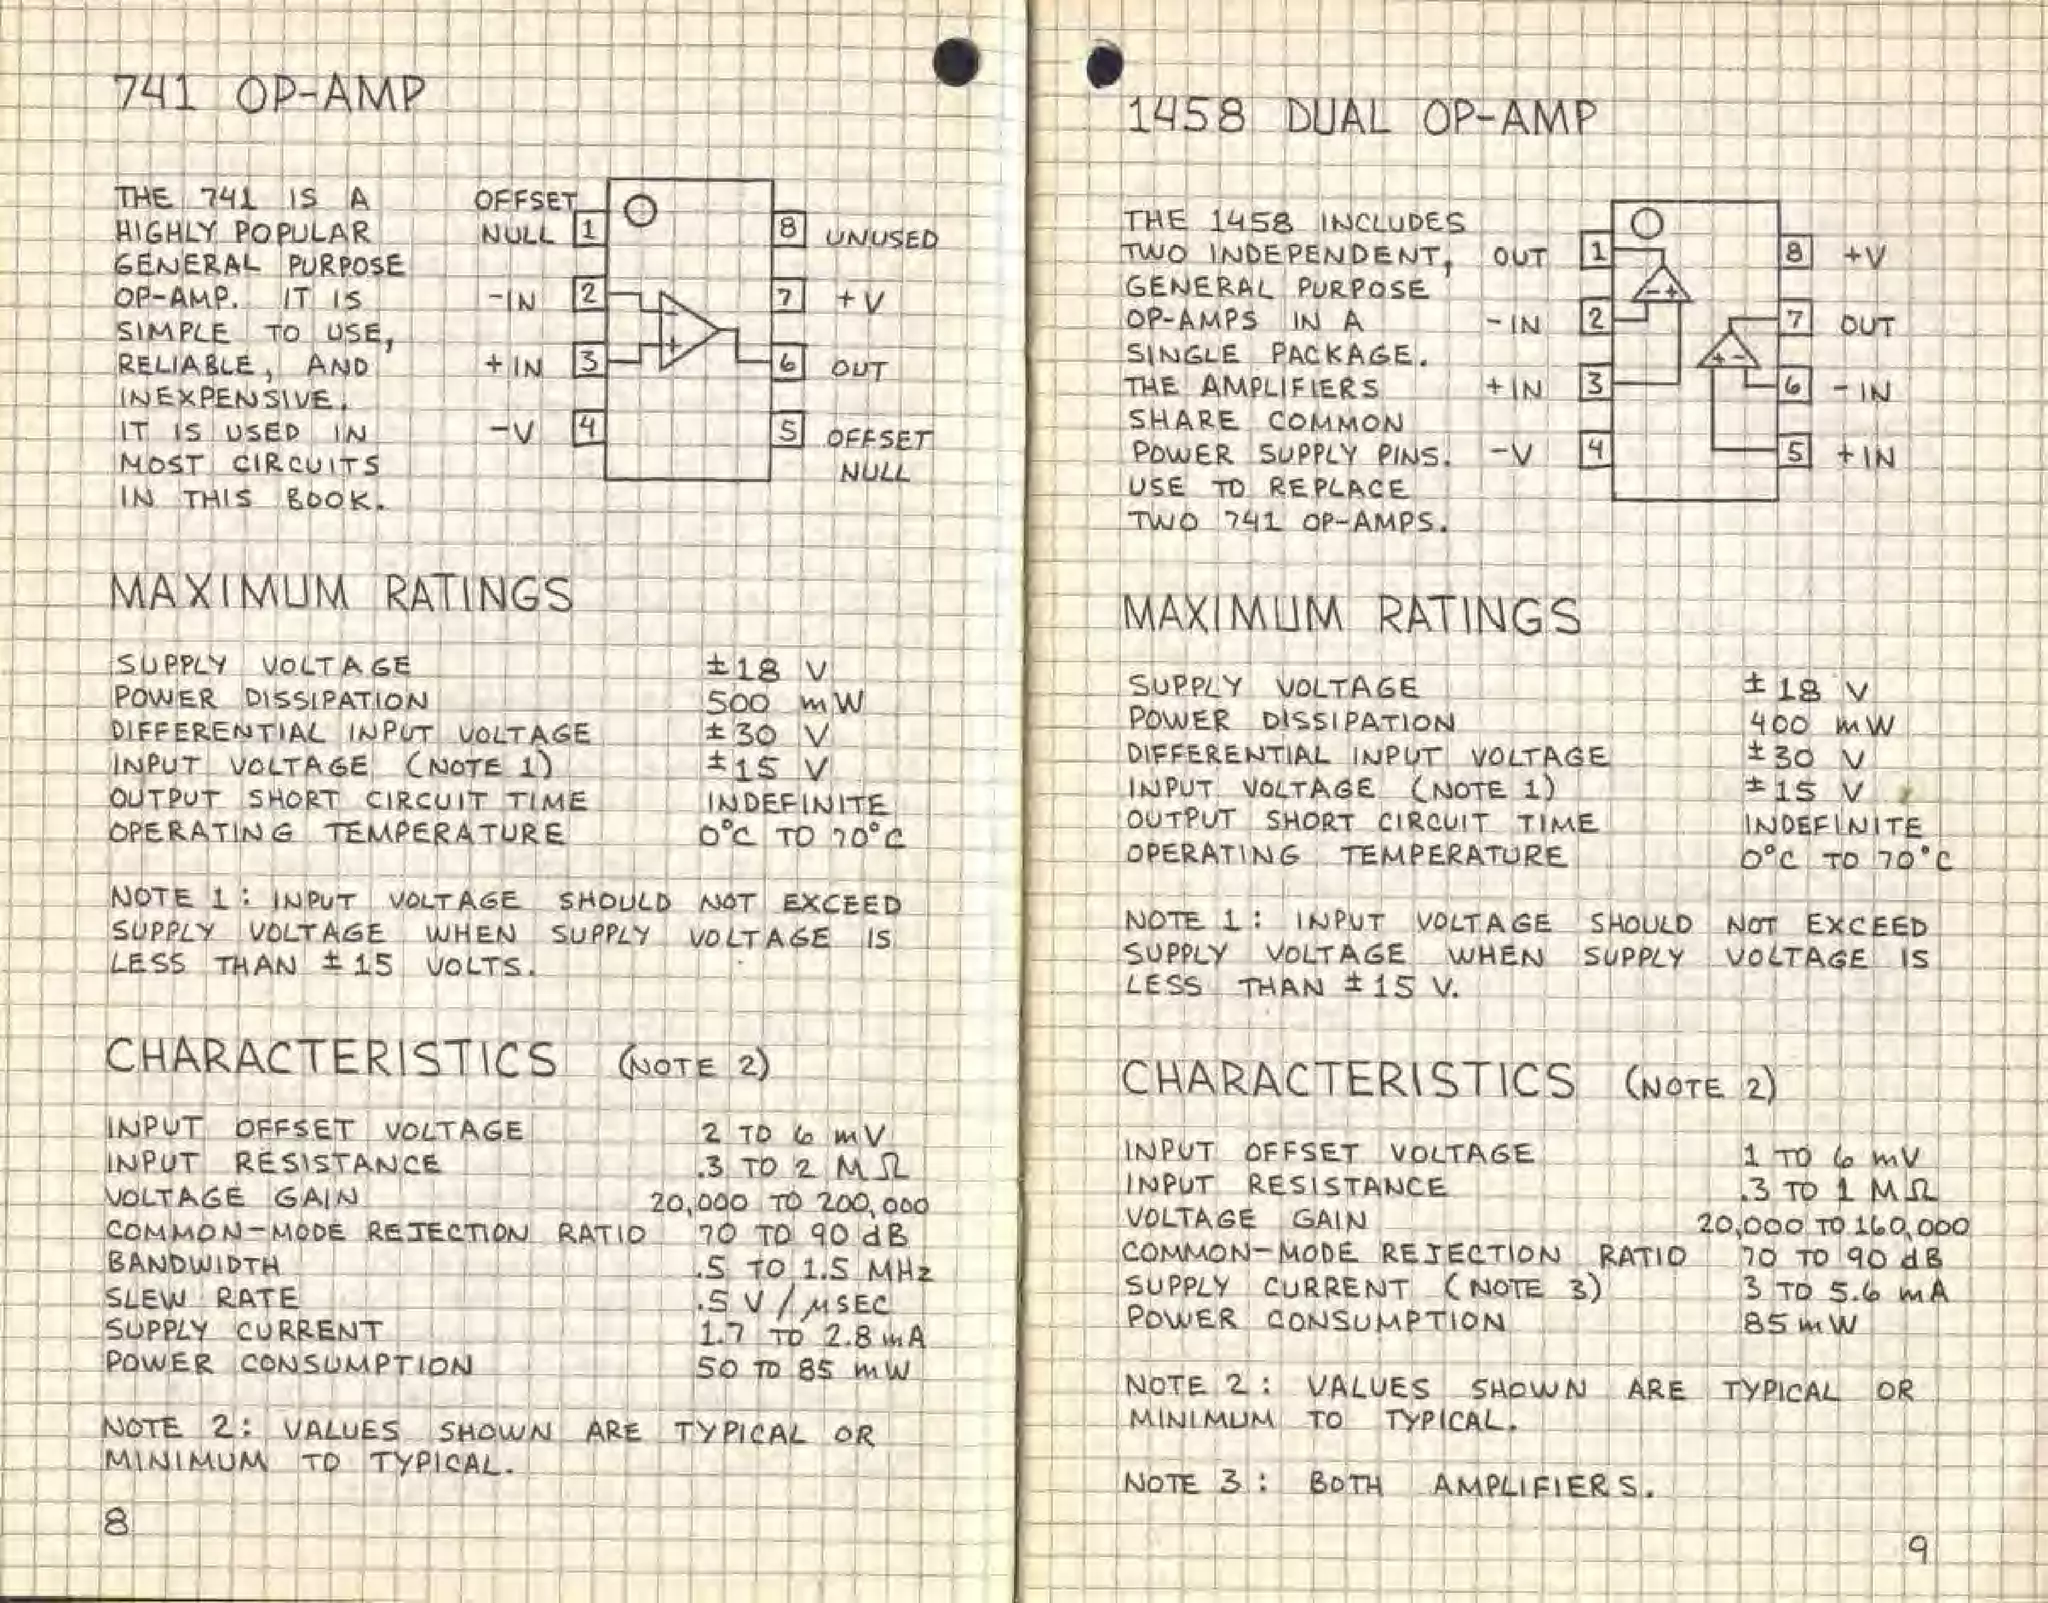 741 OP-AMP
THE 741 IS A
HIGHLY POPULAR
GENERAL PURPOSE
OP-AMP. IT IS
SIMPLE TO USE,
RELIABLE, AND
INEXPENSIVE.
IT IS USED IN
MOST CIRCUITS
IN THIS BOOK.
OFFSET
NULL 1 8 UNUSED
-IN 2 7 +V
- +
+IN 3 6 OUT
-V 4 5 OFFSET
NULL
MAXIMUM RATINGS
SUPPLY VOLTAGE ±18 V
POWER DISSIPATION 500 mW
DIFFERENTIAL INPUT VOLTAGE ±30 V
INPUT VOLTAGE (NOTE 1) ±15 V
OUTPUT SHORT CIRCUIT TIME INDEFINITE
OPERATING TEMPERATURE 0°C TO 70°C
NOTE 1: INPUT VOLTAGE SHOULD NOT EXCEED
SUPPLY VOLTAGE WHEN SUPPLY VOLTAGE IS
LESS THAN ±15 VOLTS.
CHARACTERISTICS (NOTE 2)
INPUT OFFSET VOLTAGE 2 TO 6 mV
INPUT RESISTANCE .3 TO 2 MΩ
VOLTAGE GAIN 20,000 TO 200,000
COMMON-MODE REJECTION RATIO 70 TO 90 dB
BANDWIDTH .5 TO 1.5 MHz
SLEW RATE .5 V/μSEC
SUPPLY CURRENT 1.7 TO 2.8 mA
POWER CONSUMPTION 50 TO 85 mW
NOTE 2: VALUES SHOWN ARE TYPICAL OR
MINIMUM TO TYPICAL.
8
1458 DUAL OP-AMP
THE 1458 INCLUDES
TWO INDEPENDENT,
GENERAL PURPOSE
OP-AMPS IN A
SINGLE PACKAGE.
THE AMPLIFIERS
SHARE COMMON
POWER SUPPLY PINS.
USE TO REPLACE
TWO 741 OP-AMPS.
OUT 1 8 +V
- +
-IN 2 7 OUT
+ -
+IN 3 6 -IN
-V 4 5 +IN
MAXIMUM RATINGS
SUPPLY VOLTAGE ±18 V
POWER DISSIPATION 400 mW
DIFFERENTIAL INPUT VOLTAGE ±30 V
INPUT VOLTAGE (NOTE 1) ±15 V
OUTPUT SHORT CIRCUIT TIME INDEFINITE
OPERATING TEMPERATURE 0°C TO 70°C
NOTE 1: INPUT VOLTAGE SHOULD NOT EXCEED
SUPPLY VOLTAGE WHEN SUPPLY VOLTAGE IS
LESS THAN ±15 V.
CHARACTERISTICS (NOTE 2)
INPUT OFFSET VOLTAGE 1 TO 6 mV
INPUT RESISTANCE .3 TO 1 MΩ
VOLTAGE GAIN 20,000 TO 160,000
COMMON-MODE REJECTION RATIO 70 TO 90 dB
SUPPLY CURRENT (NOTE 3) 3 TO 5.6 mA
POWER CONSUMPTION 85 mW
NOTE 2: VALUES SHOWN ARE TYPICAL OR
MINIMUM TO TYPICAL.
NOTE 3: BOTH AMPLIFIERS.
9